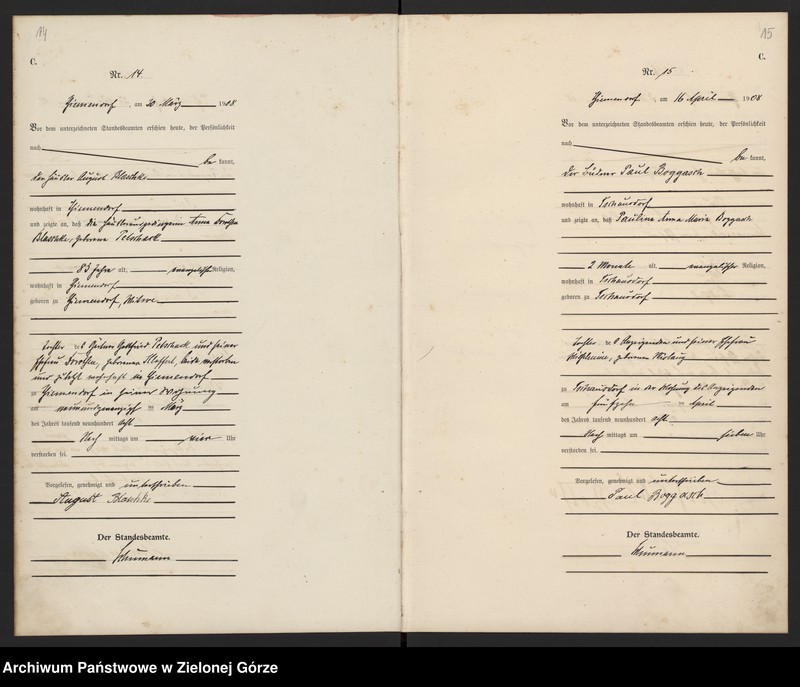 14
C.
Nr. 14.
Ziemendorf, am 30 März 1908
Vor dem unterzeichneten Standesbeamten erschien heute, der Persönlichkeit
nach
be kannt,
der Häusler August Blaschke
wohnhaft in Ziemendorf
und zeigte an, daß die Anna Dorothea
Blaschke, geborene Petschack
83 Jahre alt, evangelischer Religion,
wohnhaft in Ziemendorf
geboren zu Ziemendorf, Witwe
Tochter des Gärtner Gottfried Petschack und seiner
Ehefrau Dorothea, geborenen beide verstorben
und zuletzt wohnhaft in Ziemendorf
zu Ziemendorf in seiner Wohnung
am neunundzwanzigsten März
des Jahres tausend neunhundert acht
Nach mittags um vier Uhr
verstorben sei.
Vorgelesen, genehmigt und unterschrieben
August Blaschke
Der Standesbeamte.
15
C.
Nr. 15
Ziemendorf, am 16 April 1908
Vor dem unterzeichneten Standesbeamten erschien heute, der Persönlichkeit
nach
be kannt,
der Büdner Paul Boggasch
wohnhaft in Tschausdorf
und zeigte an, daß Pauline Anna Maria Boggasch
2 Monate alt, evangelischer Religion,
wohnhaft in Tschausdorf
geboren zu Tschausdorf
Tochter des Anzeigenden und seiner Ehefrau
geborenen
zu Tschausdorf in der Wohnung des Anzeigenden
am fünfzehn April
des Jahres tausend neunhundert acht
Nach mittags um sieben Uhr
verstorben sei.
Vorgelesen, genehmigt und unterschrieben
Paul Boggasch
Der Standesbeamte.
Archiwum Państwowe w Zielonej Górze